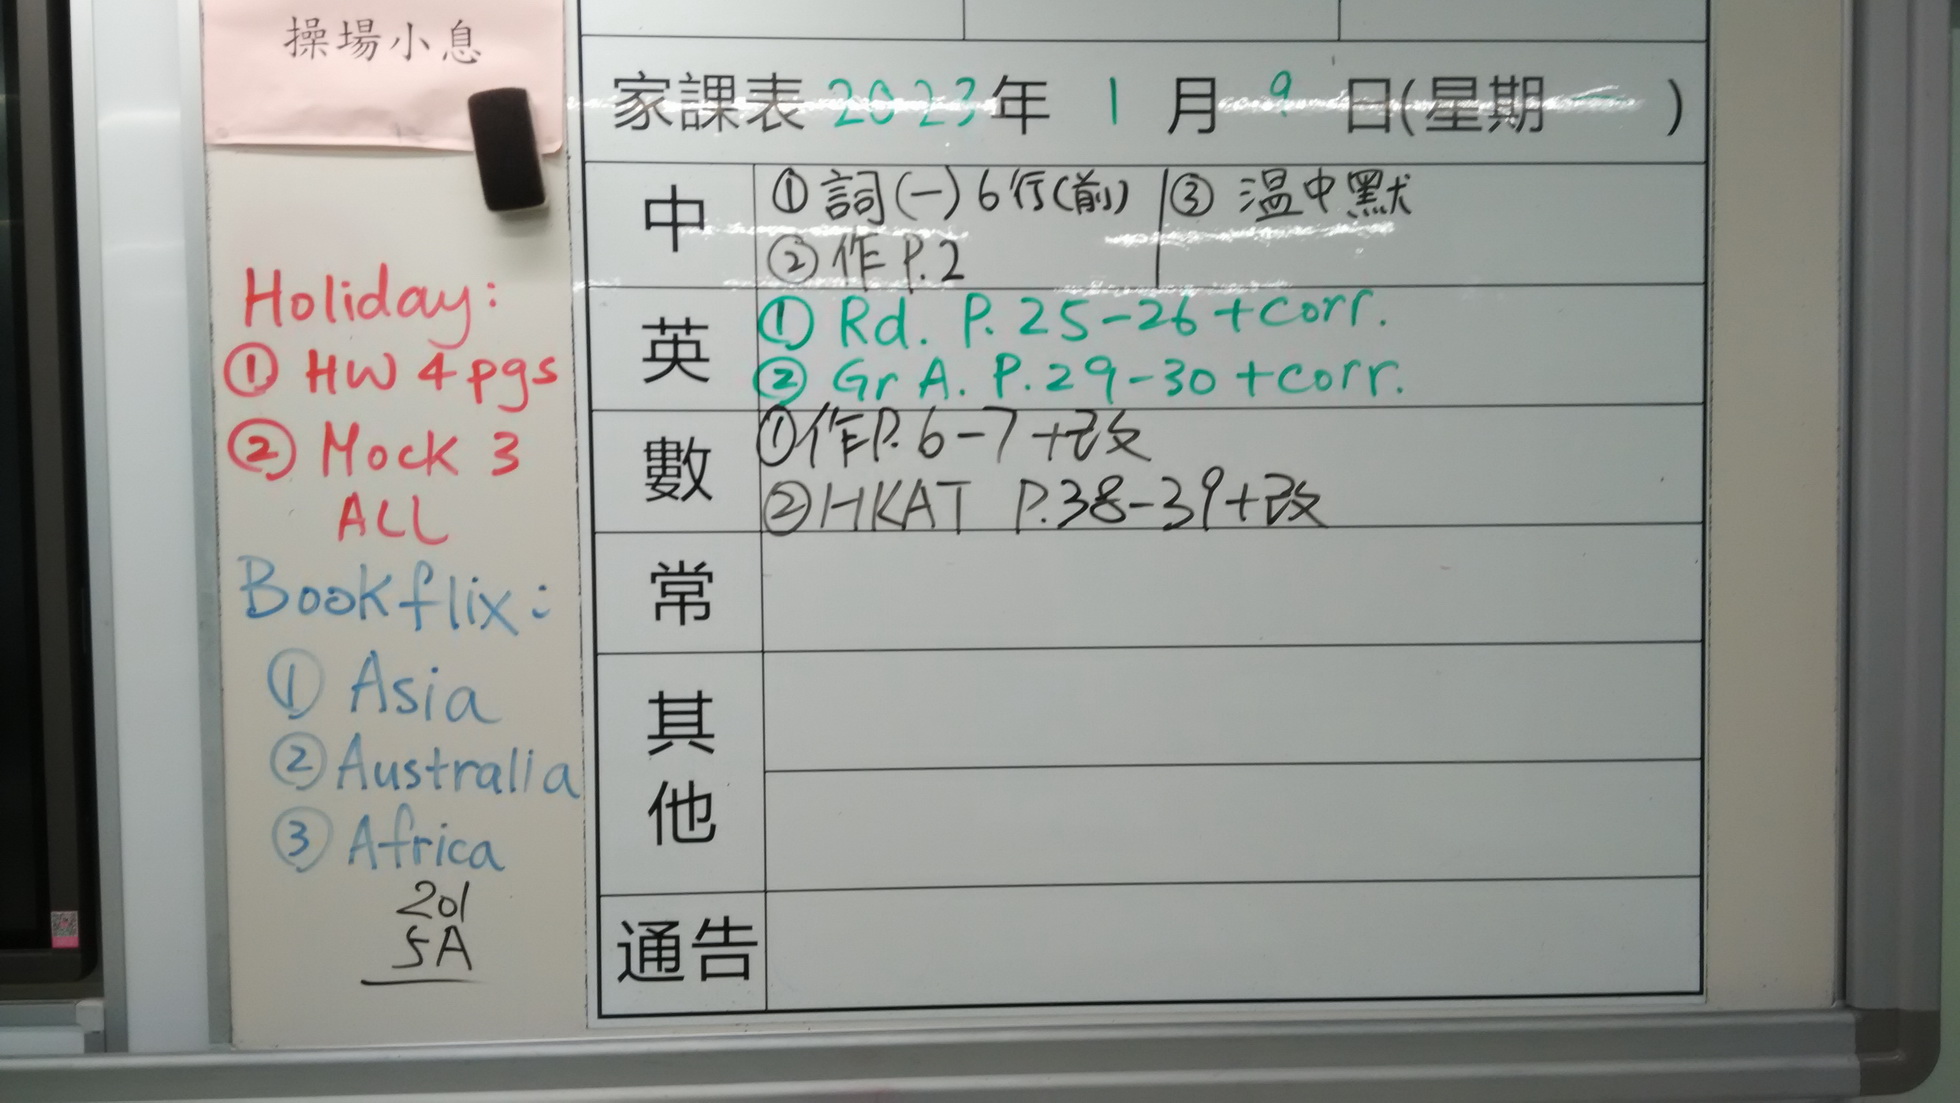 操場小息
家課表 2023年 1 月 9 日(星期一)
中
① 詞(一) 6行(前)
② 作 P.2
③ 溫中默
英
① Rd. P. 25-26 + corr.
② Gr A. P. 29-30 + corr.
數
① 作P. 6-7 + 改
② HKAT P.38-39 + 改
常
其他
通告
Holiday:
① HW 4 pgs
② Mock 3
ALL
Bookflix:
① Asia
② Australia
③ Africa
201
5A